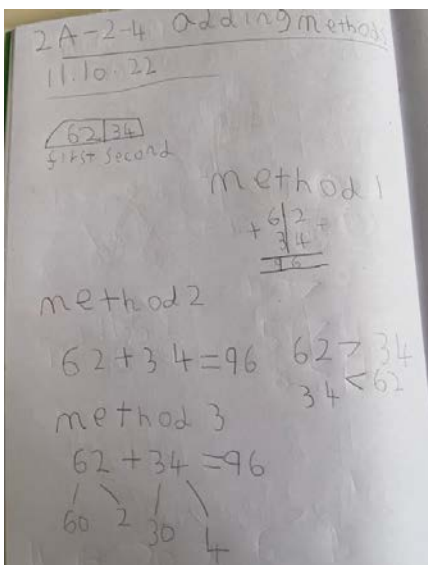 2A-2-4 adding methods
11.10.22
62 34
first second
method 1
+ 6 2 +
3 4
9 6
method 2
62 + 34 = 96
62 > 34
34 < 62
method 3
62 + 34 = 96
60 2 30 4